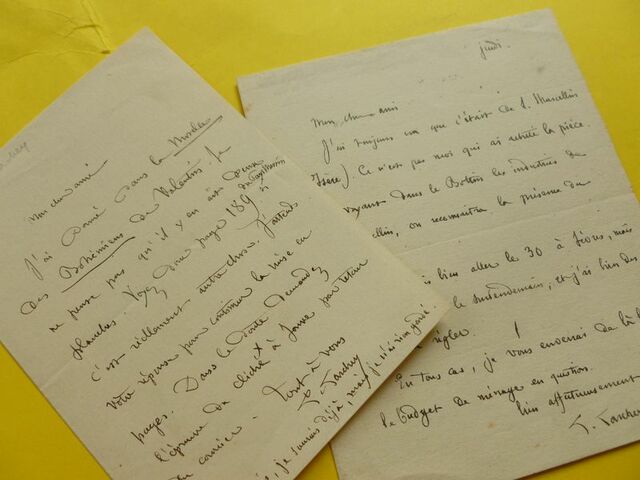 Mon cher ami
J'ai donné dans la Marche
des Bohémiens de Valentin. Je
ne pense pas qu'il y en ait deux
planches. Voyez donc page 189 si
c'est réellement autre chose. J'attends
votre réponse pour continuer la mise en
pages. Dans le doute demandez
l'épreuve du cliché à Jonve par retour
du courrier. Tout à vous
je saurais déjà, mais je n'ai rien gardé.
jeudi.
Mon cher ami
J'ai toujours cru que c'était de S. Marcellin
(Isère). Ce n'est pas moi qui ai acheté la pièce.
voyant dans le Bottin les industries de
llin, on reconnaîtra la présence du
bien aller le 30 à Sèvres, mais
le surlendemain, et j'ai bien des
régler.
En tous cas, je vous enverrai de là
le budget de ménage en question.
bien affectueusement